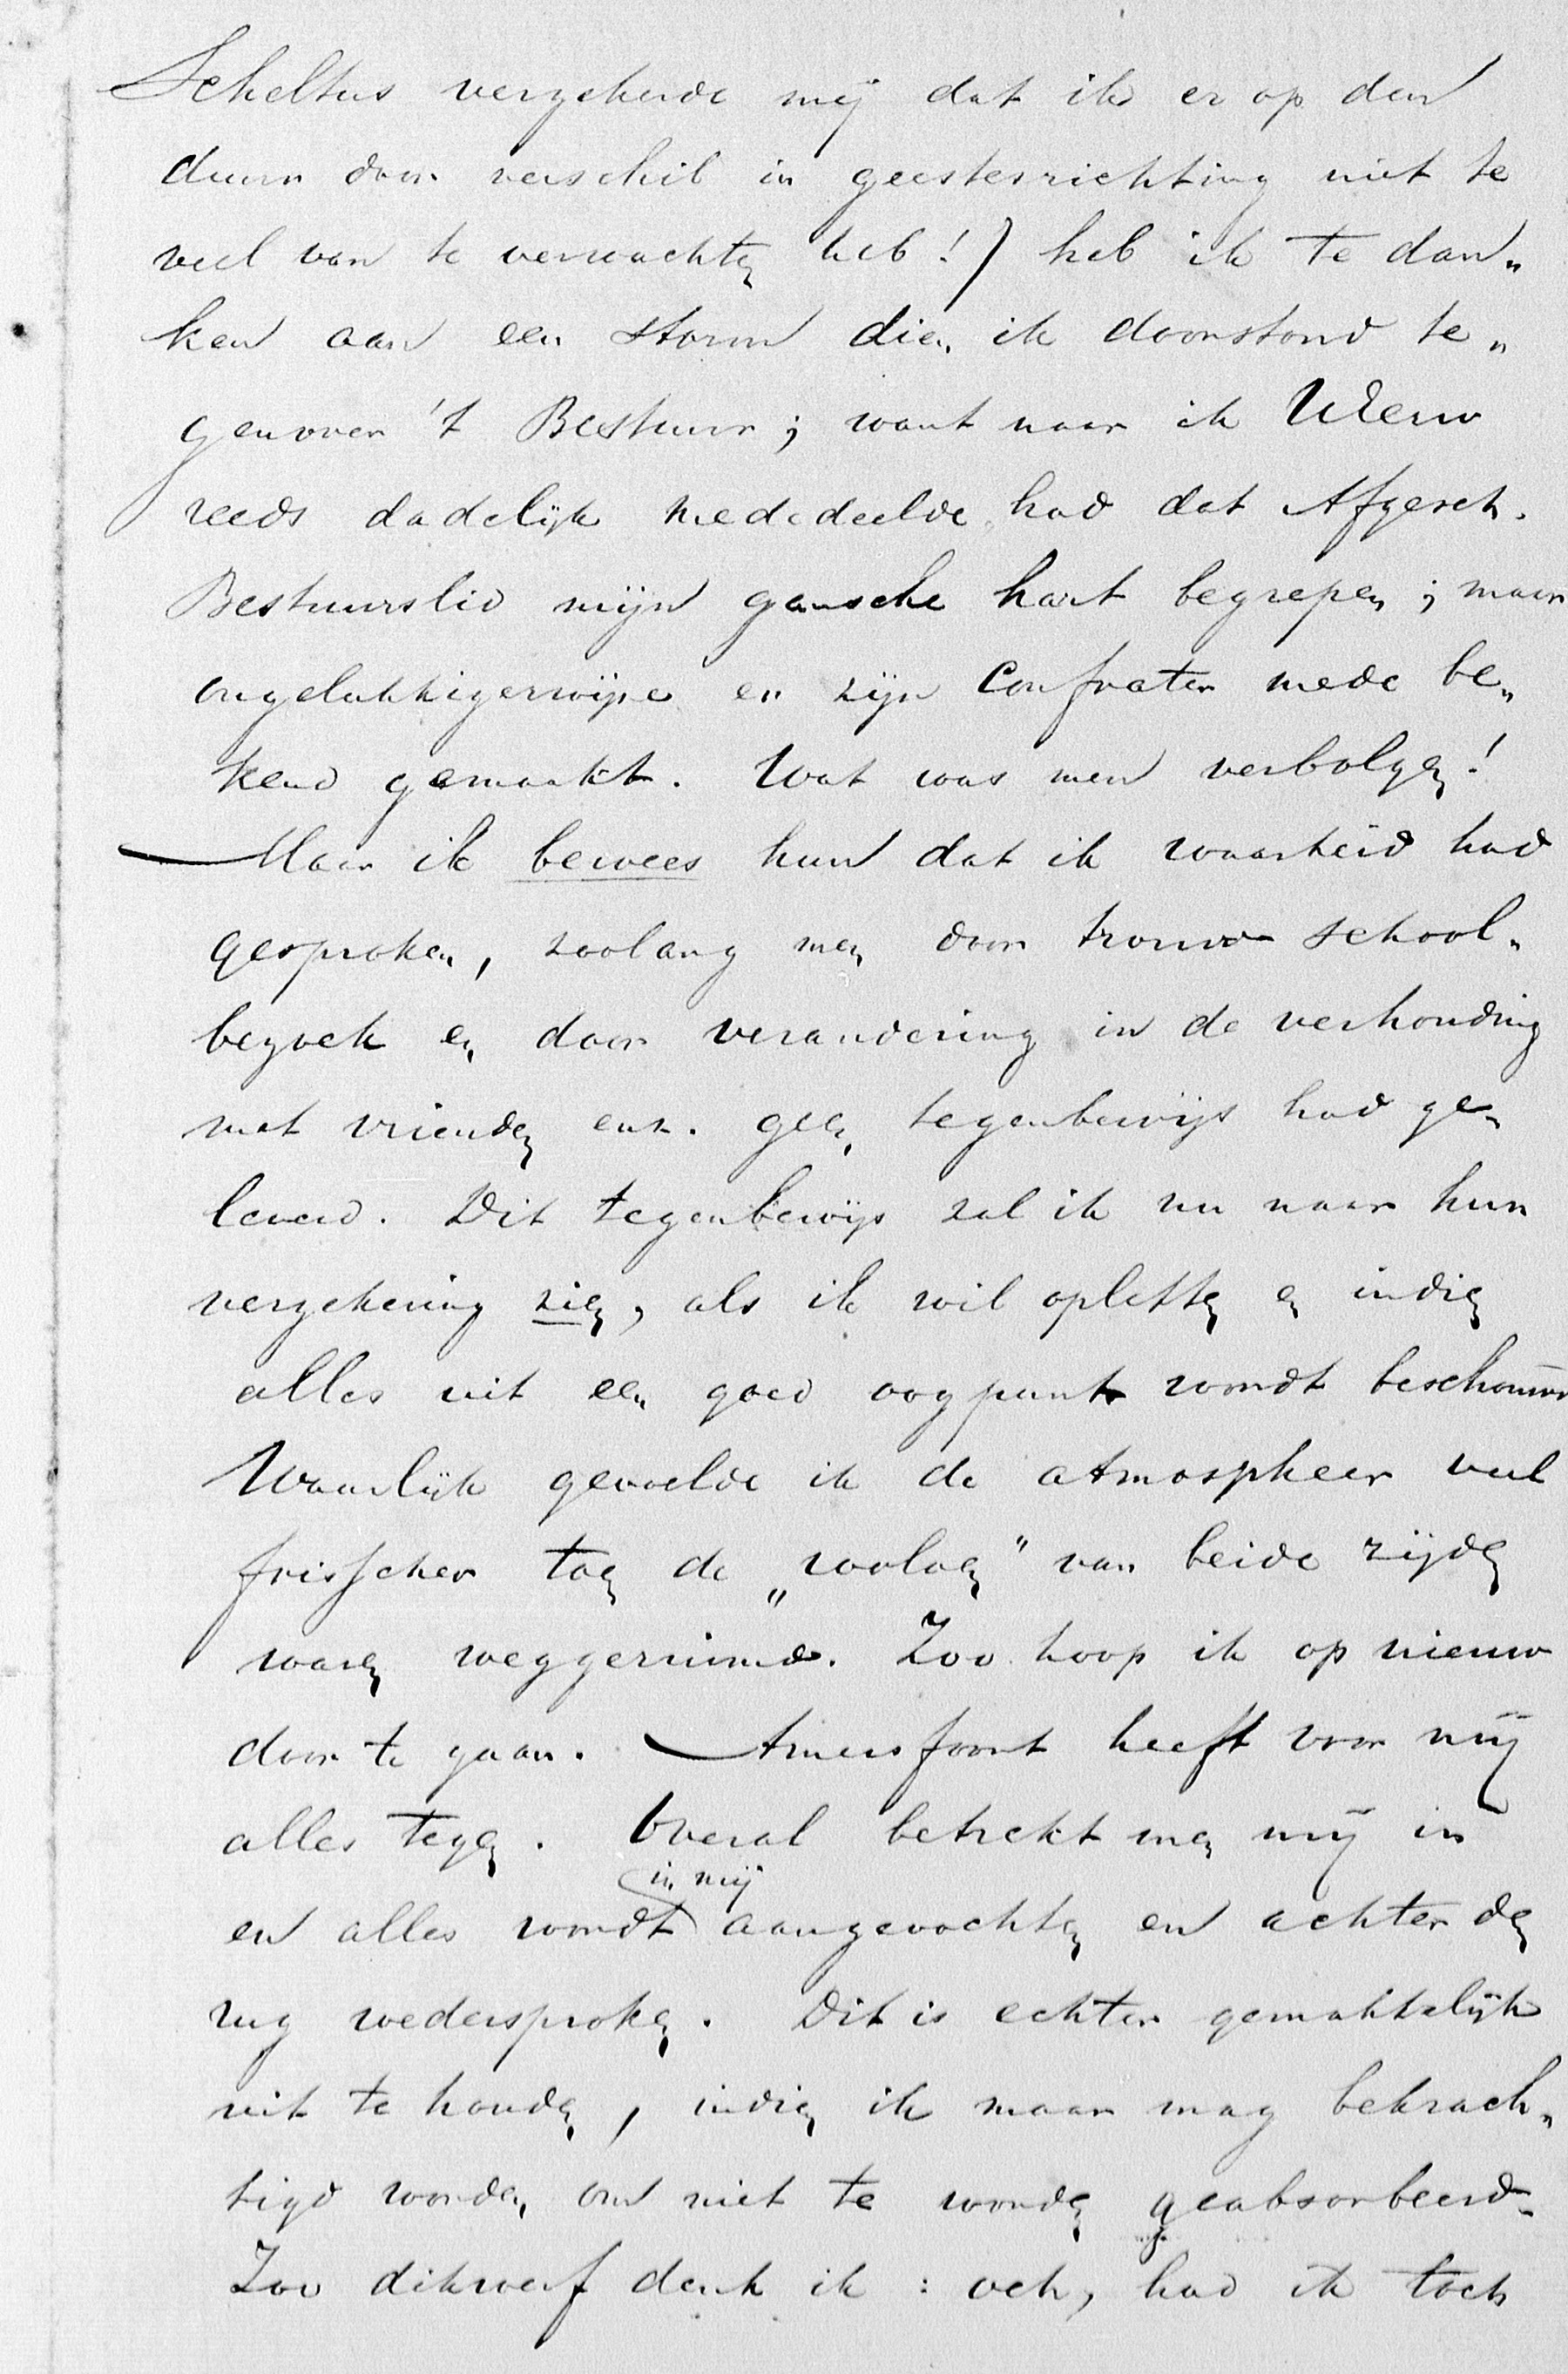 Scheltus verzekerde mij dat ik er op den
duur door verschil in geestesrichting niet te
veel van te verwachten heb!) heb ik te dan„
ken aan een storm dien ik doorstond te„
genover 't Bestuur; want naar ik UEerw
reeds dadelijk mededeelde had dat Afgesch.
Bestuurslid mijn gansche hart begrepen; maar
ongelukkigerwijze er zijn Confrater mede be„
kend gemaakt. Wat was men verbolgen!
— Maar ik bewees hun dat ik waarheid had
gesproken, zoolang men door trouw school„
bezoek en door verandering in de verhouding
met vrienden enz. geen tegenbewijs had ge„
leverd. Dit tegenbewijs zal ik nu naar hun
verzekering zien, als ik wil opletten en indien
alles uit een goed oogpunt wordt beschouwd
Waarlijk gevoelde ik de atmospheer veel
frisscher toen de „wolken" van beide zijden
waren weggeruimd. Zoo hoop ik op nieuw
door te gaan. — Amersfoort heeft voor mij
alles tegen. Overal betrekt men mij in
en alles wordt in mij aangevochten en achter den
rug wedersproken. Dit is echter gemakkelijk
uit te houden, indien ik maar mag bekrach„
tigd worden om niet te worden geabsorbeerd.
Zoo dikwerf denk ik: och, had ik toch